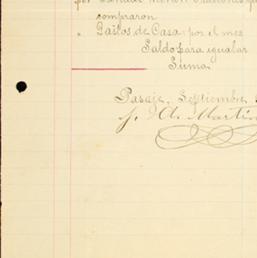 por
compraron
" Gastos de Casa por el mes
Saldo para igualar
Suma
Pasaje, Septiembre
J. A. Martín